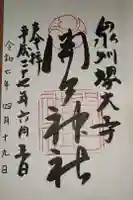 泉州堺大寺
開口神社
奉拝
平成二十七年六月
令和七年四月十九日